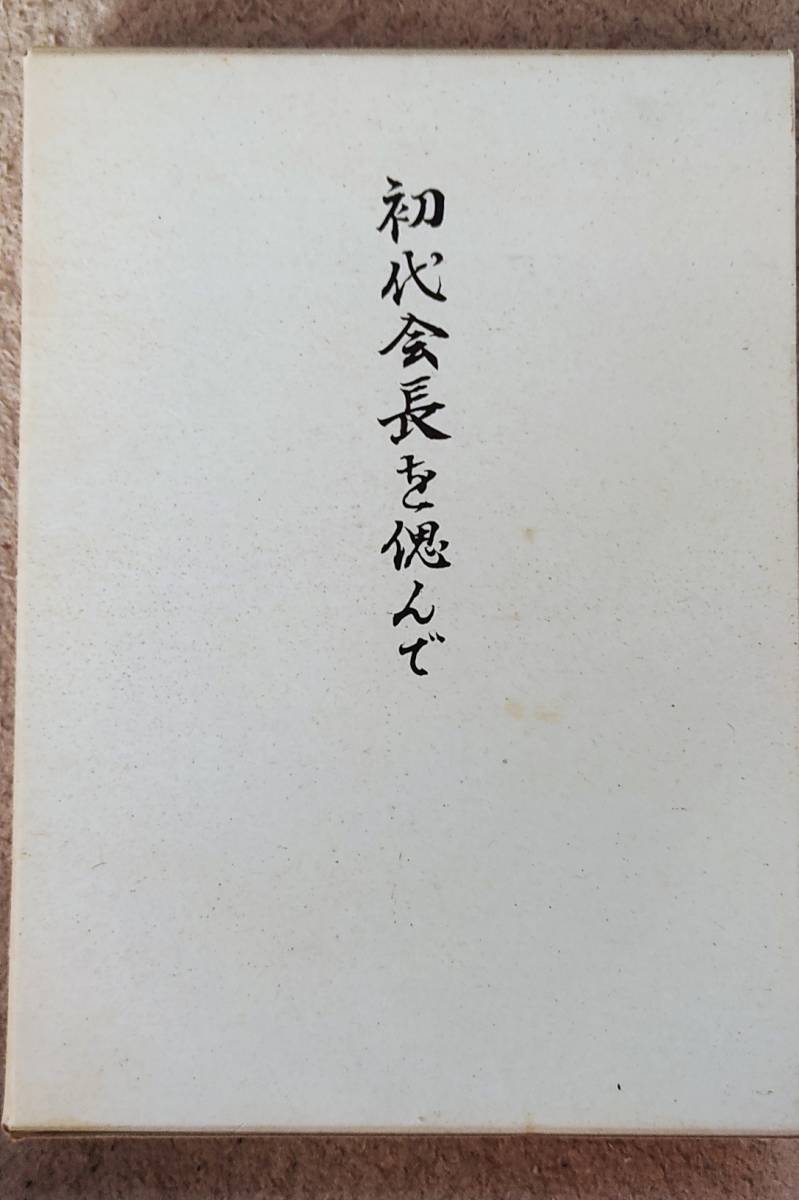 初代会長を偲んで